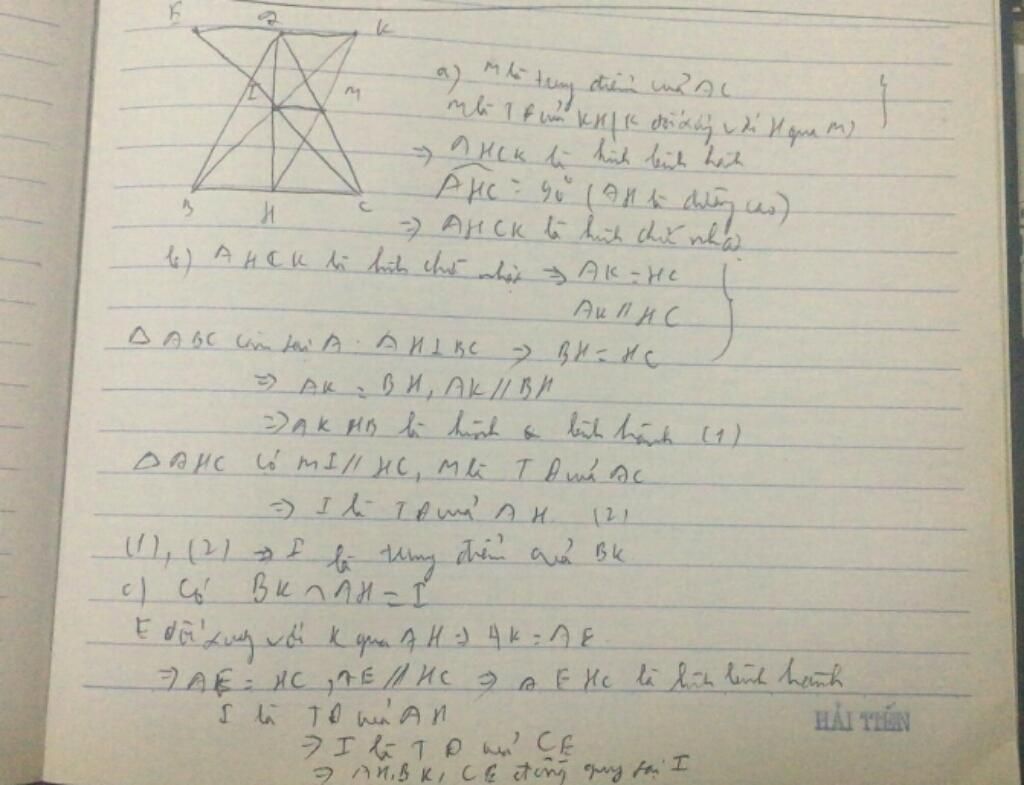 E A K
I M
B H C
a) M là trung điểm của AC
M là TĐ của KH (K đối xứng với H qua M)
=> AHCK là hình bình hành
AHC = 90° (AH là đường cao)
=> AHCK là hình chữ nhật
b) AHCK là hình chữ nhật => AK = HC
AK // HC
Δ ABC cân tại A. AH ⊥ BC => BH = HC
=> AK = BH, AK // BH
=> AKHB là hình bình hành (1)
Δ AHC có MI // HC, M là TĐ của AC
=> I là TĐ của AH (2)
(1), (2) => I là trung điểm của BK
c) Có BK ∩ AH = I
E đối xứng với K qua AH => AK = AE
=> AE = HC, AE // HC => AEHC là hình bình hành
I là TĐ của AH
=> I là TĐ của CE
=> AH, BK, CE đồng quy tại I
HẢI TIẾN